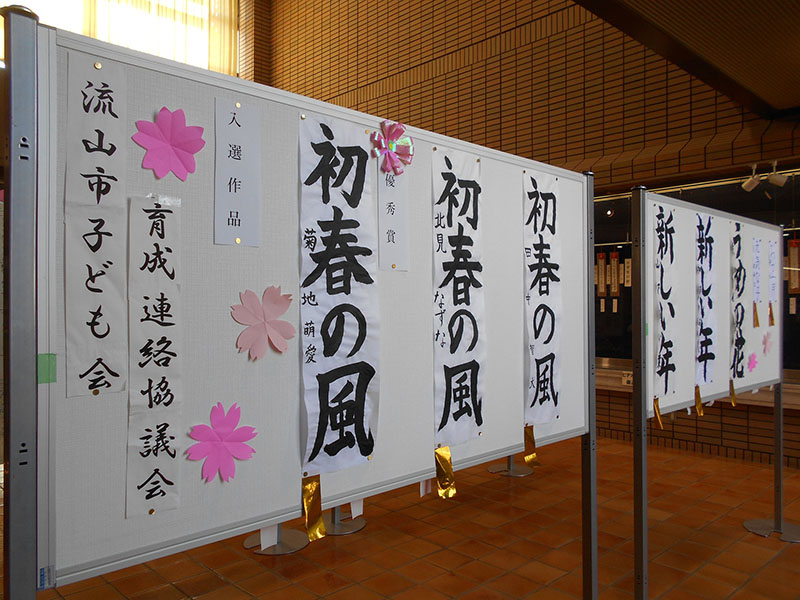 流山市子ども会
育成連絡協議会
入選作品
初春の風
菊地萌愛
優秀賞
初春の風
北見なずな
初春の風
新しい年
新しい年
うめの花